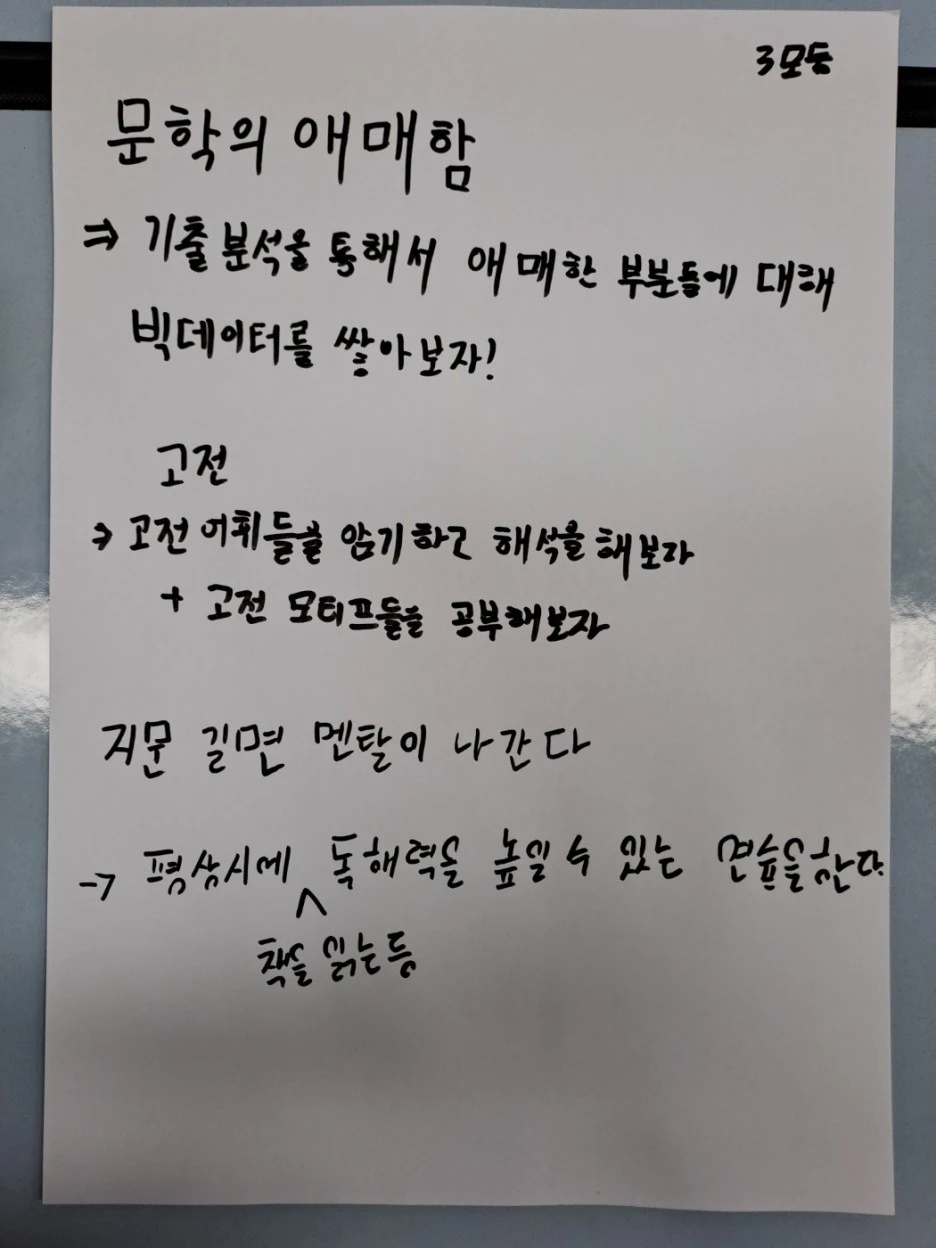 3모둠
문학의 애매함
⇒ 기출분석을 통해서 애매한 부분들에 대해
빅데이터를 쌓아보자!
고전
⇒ 고전어휘들을 암기하고 해석을 해보자
+ 고전 모티프들을 공부해보자
지문 길면 멘탈이 나간다
→ 평상시에 독해력을 높일 수 있는 연습을한다.
책을 읽는등